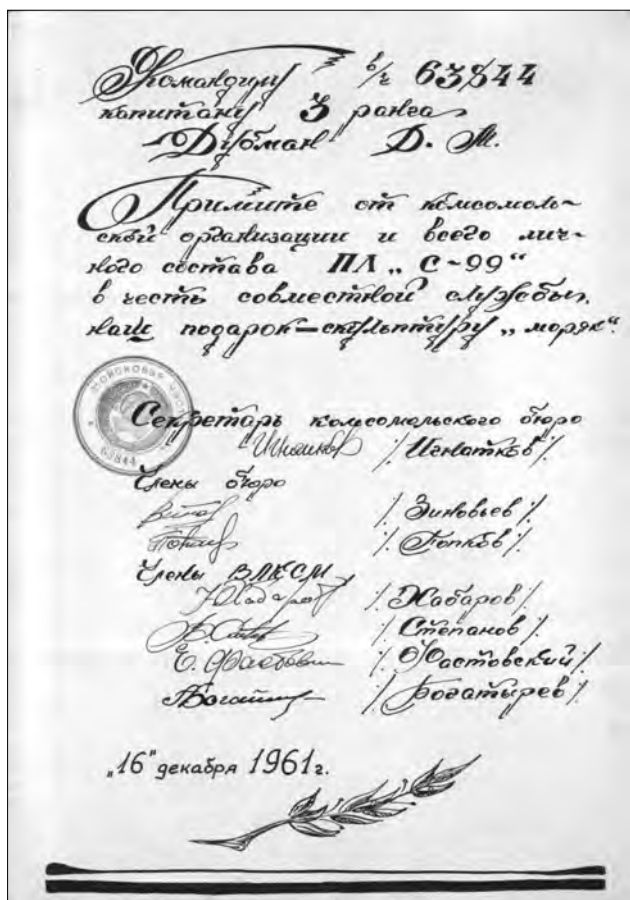 Командиру в/ч 63844
капитану 3 ранга
Дубман Д. М.
Примите от комсомоль-
ской организации и всего лич-
ного состава ПЛ „С-99“
в честь совместной службы,
наш подарок—скульптуру „моряк“.
Войсковая часть
63844
Секретарь комсомольского бюро
/ Игнатков /
Члены бюро
/. Зиновьев ./
/. Попков ./
Члены ВЛКСМ
/. Хабаров ./
/. Степанов ./
Е. /. Фастовский ./
/. Богатырев ./
„16“ декабря 1961 г.